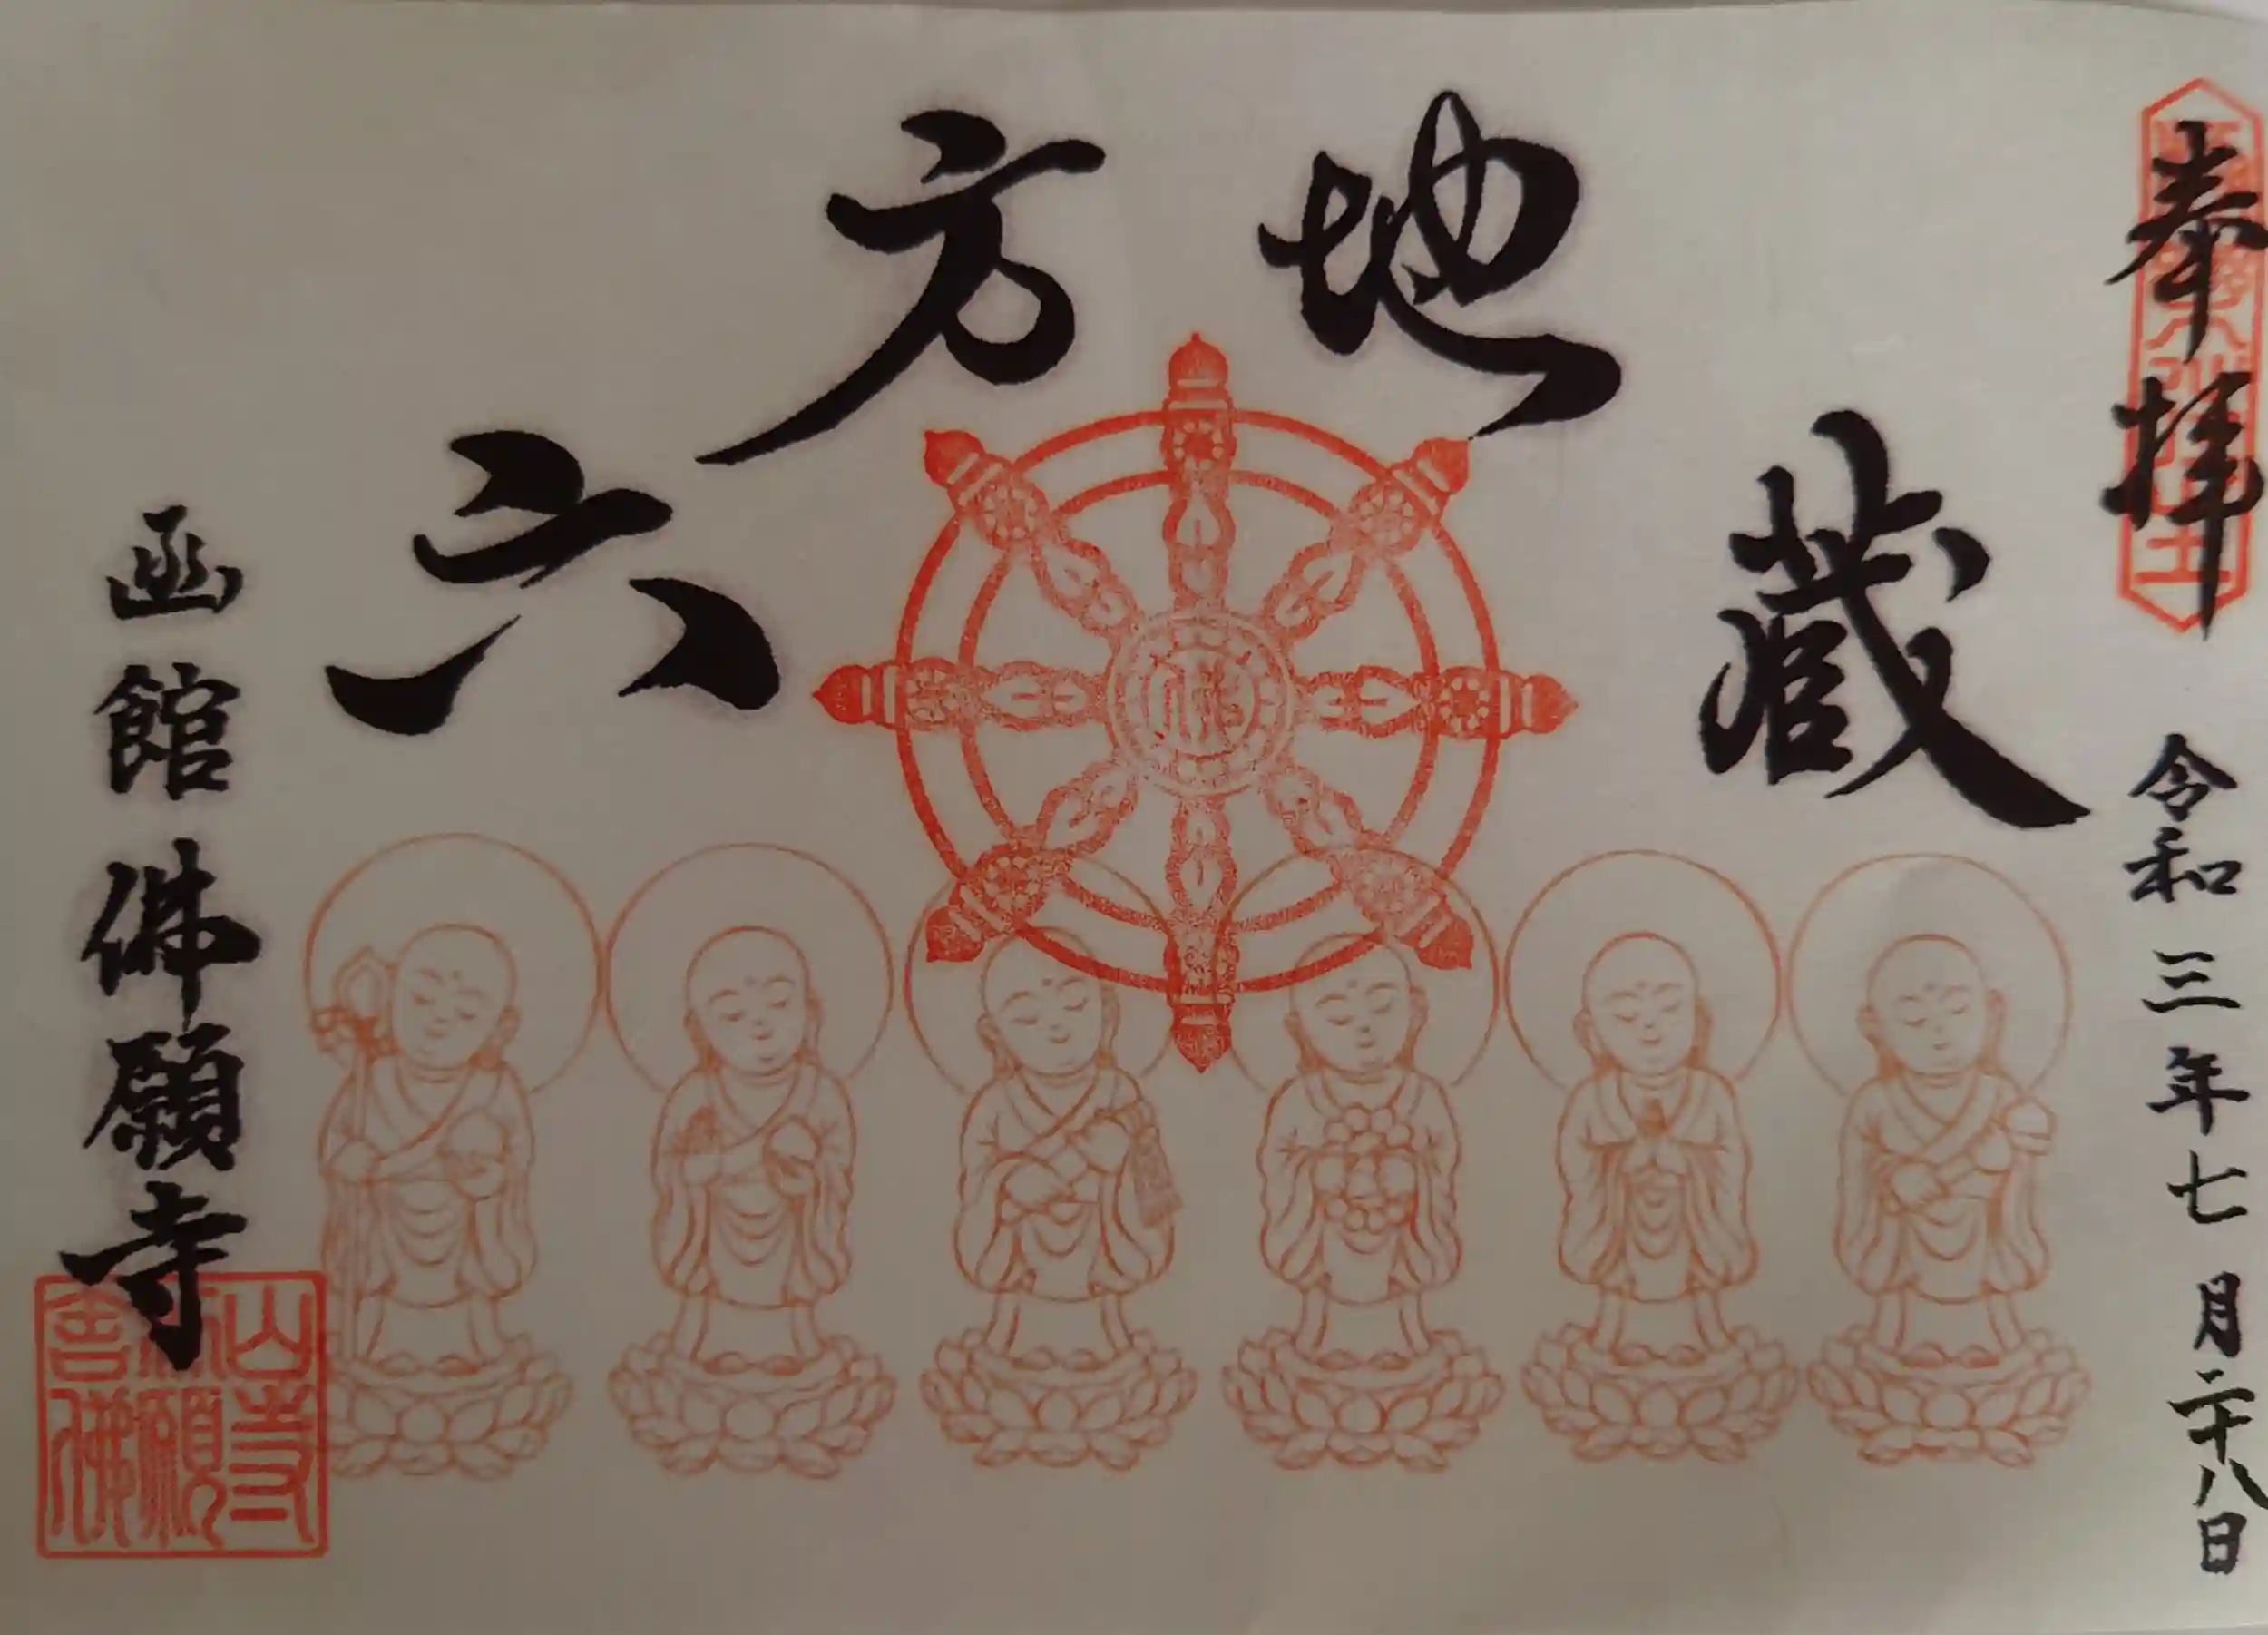 奉拝
令和三年七月二十八日
六方地蔵
函館佛願寺